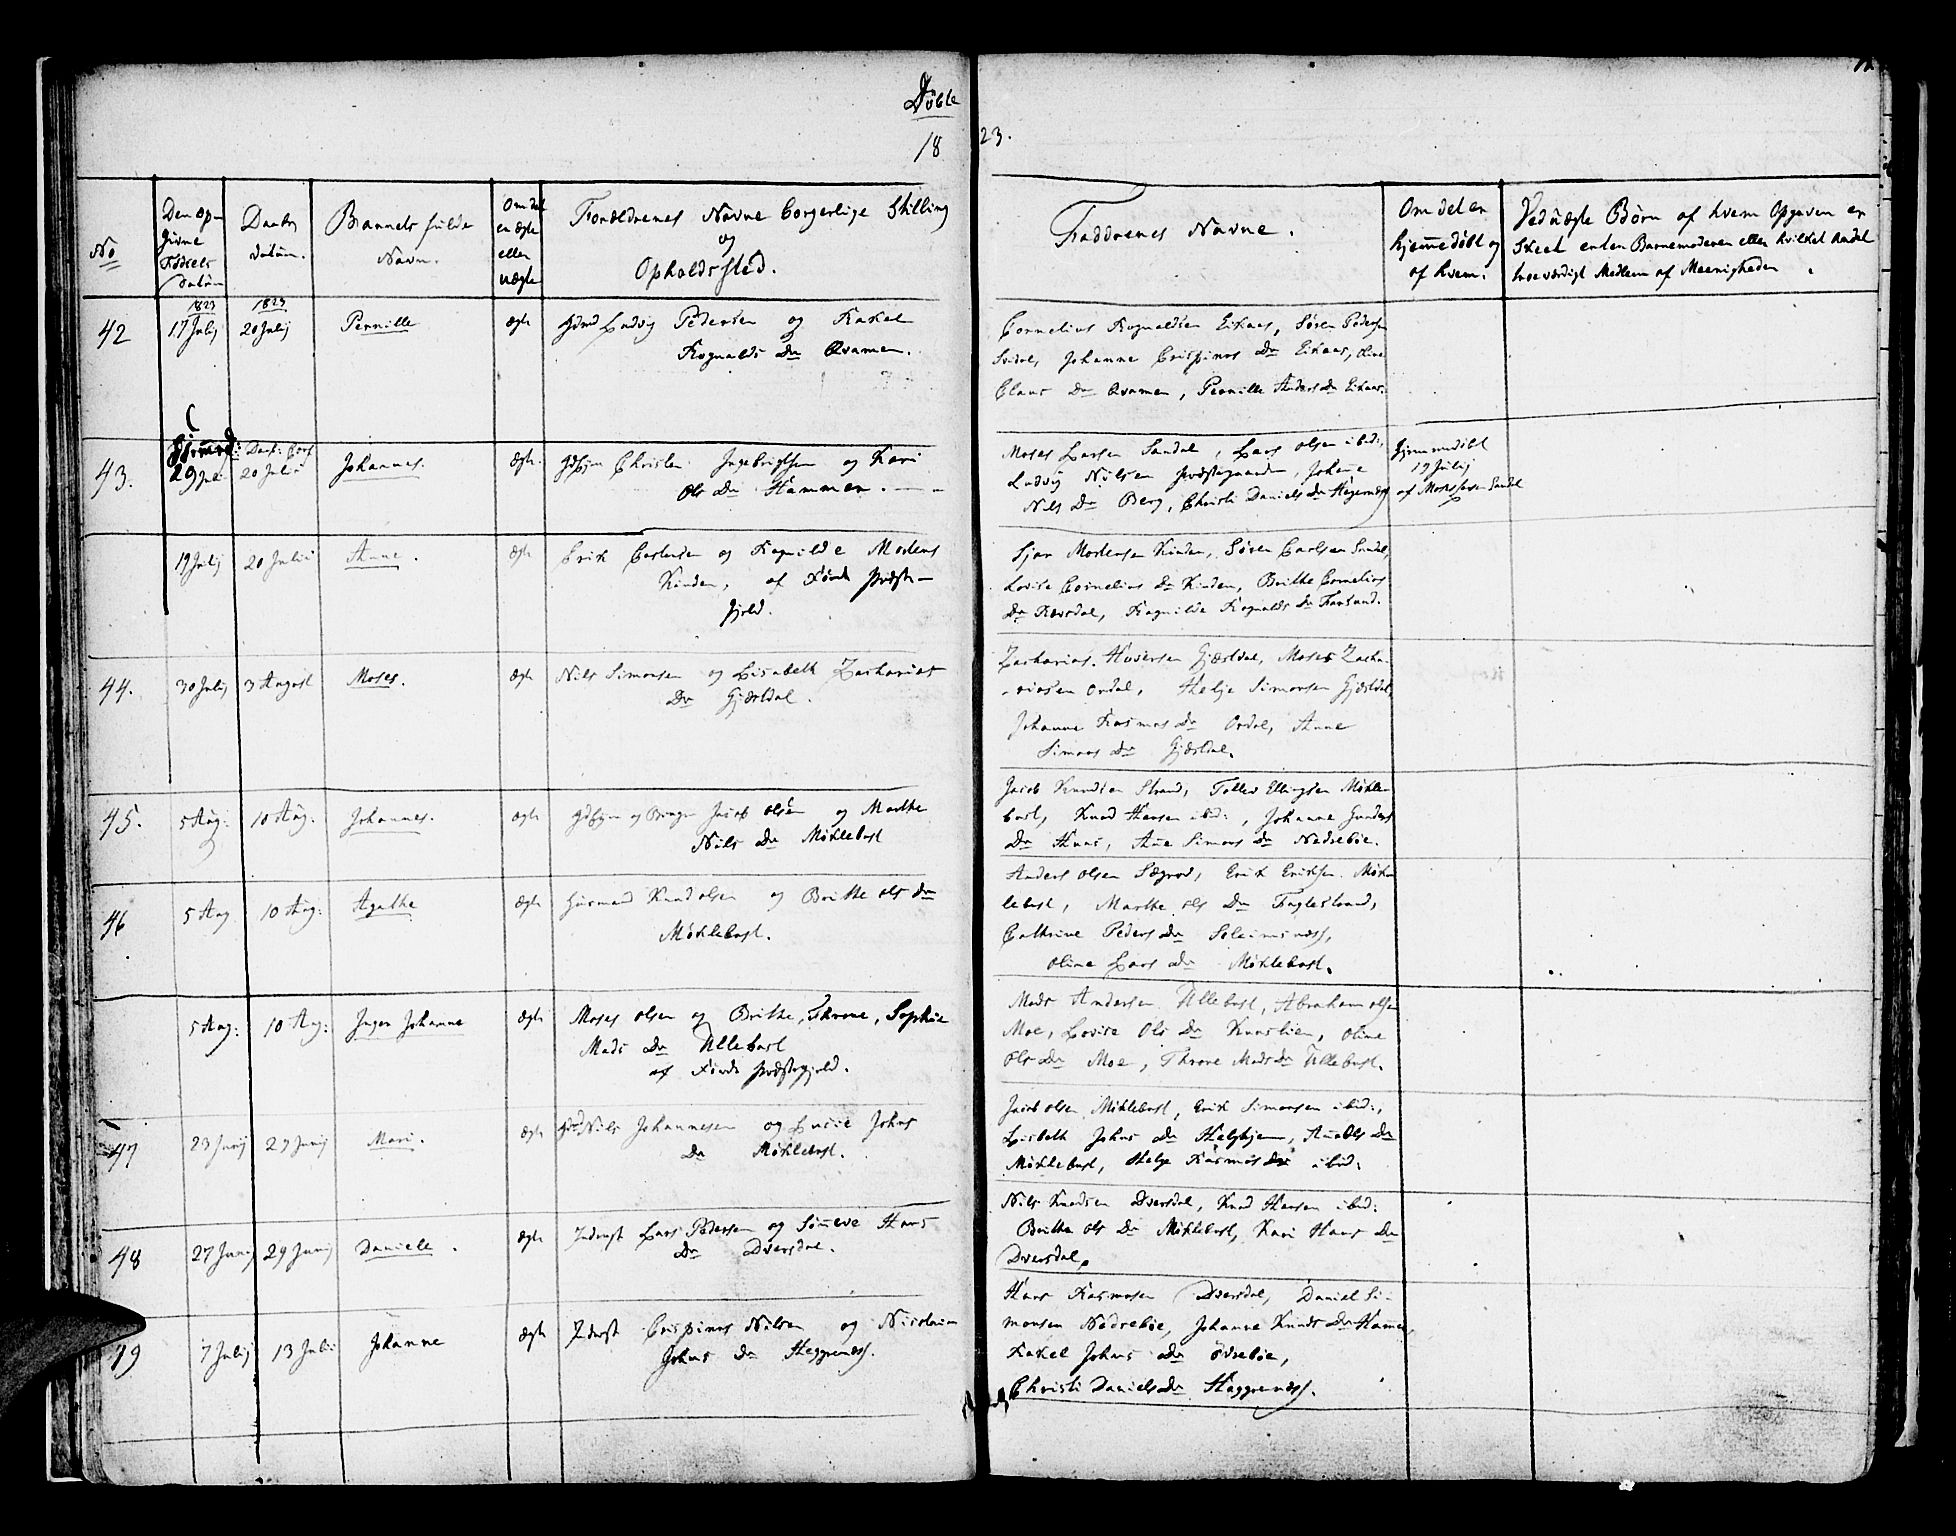 Døbte
1823.
No
Den op-
givne
Fødsels
Datum
Daabs
Datum.
Barnets fulde
Navn.
Om det
er ægte
eller
uægte
Forældrenes Navne borgerlige Stilling
og
Opholdssted.
Faddrenes Navne.
Om det er
hjemmedøbt og
af hvem.
Ved uægte Børn af hvem Opgaven er
skeet enten Barnemoderen eller hvilket andet
troeværdigt Medlem af Meenigheden.
42
1823
17 Julij
1823
20 Julij
Pernille
ægte
Gdmd Ludvig Pedersen og Rakel
Rognalds Dr Qvamen.
Cornelius Rognaldsen Eikaas, Søren Peders
Johanne Crispinus Dr Eikaas, Oline
Claus Dr Qvamen, Pernille Anders Dr Eikaas.
43.
29 Jul
20 Julii
Johannes.
ægte
Christen Ingebrigtsen og Kari
Ols Dr Hammer.
Moses Larsen Sandal, Lars Olsen ibid.,
Ludvig Nilsen Præstegaarden, Johanne
Nils Dr Berg, Christi Daniels Dr Heggenæs
Hjemmedøbt
19 Julij
af Moses Larsen Sandal
19 Julij
20 Julii
Anne.
ægte
Erik Carlsen og Ragnilde Mortens
Kinden, af Førde Præste-
gjeld.
Mortensen Kinden, Søren Carlsen Sandal,
Lovise Cornelius Dr Kinden, Brithe Cornelius
Dr Ragnilde Rognalds Dr
44.
30 Julij
3 August
Moses.
ægte
Nils Simonsen og Lisabeth Zacharias
Dr Gjæsdal.
Zacharias Gjæsdal, Moses Zacha-
riasen Ordal, Helje Simonsen Gjæsdal,
Johanne Rasmus Dr Ordal, Anne
Simons Dr Gjæsdal.
45.
5 Aug:
10 Aug:
Johannes.
ægte
Jacob Olsen og Marthe
Nils Dr Myklebust
Jacob Knudsen Strand, Tollev Ellingsen Mykle-
bust, Knud Hansen ibid:, Johanne Gunders
Dr Huus, Anne Simons Dr Nedrebøe.
46
5 Aug
10 Aug:
Agathe
ægte
Huusmand Knud Olsen og Brithe Ols Dr
Myklebust.
Anders Olsen Sægrov, Erik Eriksen Myk-
lebust, Marthe Ols Dr Fuglestrand,
Cathrine Peders Dr Soleimsnæss,
Oline Lars Dr Myklebust.
5 Aug:
10 Aug:
Inger Johanne
ægte
Moses Olsen og Brithe, Throne, Sophie
Mads Dr Ullebust
af Førde Præstegjeld.
Mads Andersen Ullebust, Abraham Olsen
Moe, Lovise Ols Dr Oline
Ols Dr Moe, Throne Mads Dr Ullebust.
47
23 Junij
29 Junij
Mari.
ægte
Gdmd Nils Johannesen og Lucie Johns
Dr Myklebust.
Jacob Olsen Myklebust, Erik Simonsen ibid:,
Lisbeth Johns Dr Helgheim, Anne Ols Dr
Myklebust, Helje Rasmus Dr ibid:
48
27 Junij
29 Junij
Daniele.
ægte
Inderst Lars Pedersen og Synneve Hans
Dr Dversdal.
Nils Knudsen Dversdal, Knud Hansen ibid:
Brithe Ols Dr Myklebust, Kari Hans Dr
Dversdal.
49
7 Julij
13 Julii
Johanne
ægte
Inderst Crispinus Nilsen og Nicolaia
Johns Dr Heggenæss.
Hans Rasmusen Dversdal, Daniel Si-
monsen Nedrebøe, Johanne Knuds Dr Hammer,
Rakel Johns Dr Øvrebøe,
Christi Daniels Dr Heggenæss.